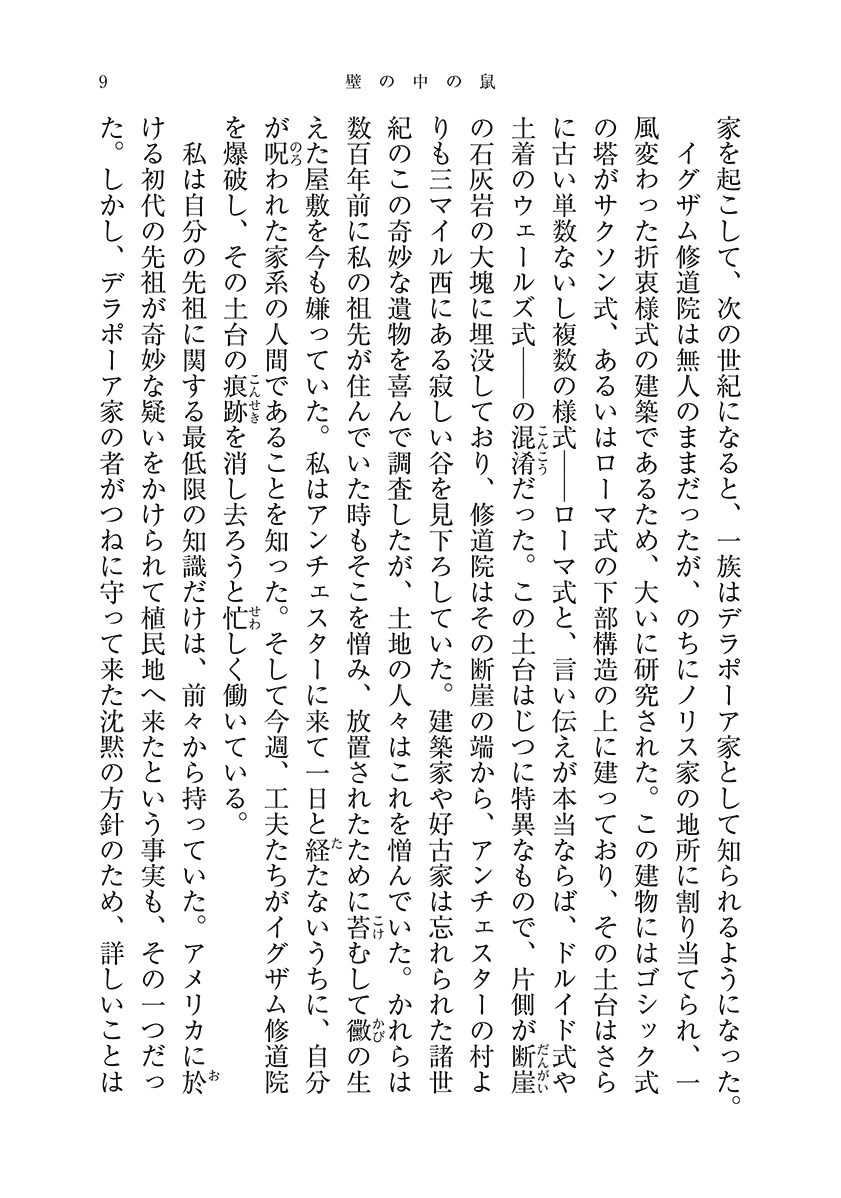 9
壁の中の鼠
家を起こして、次の世紀になると、一族はデラポーア家として知られるようになった。
イグザム修道院は無人のままだったが、のちにノリス家の地所に割り当てられ、一
風変わった折衷様式の建築であるため、大いに研究された。この建物にはゴシック式
の塔がサクソン式、あるいはローマ式の下部構造の上に建っており、その土台はさら
に古い単数ないし複数の様式――ローマ式と、言い伝えが本当ならば、ドルイド式や
土着のウェールズ式――の混淆だった。この土台はじつに特異なもので、片側が断崖
の石灰岩の大塊に埋没しており、修道院はその断崖の端から、アンチェスターの村よ
りも三マイル西にある寂しい谷を見下ろしていた。建築家や好古家は忘れられた諸世
紀のこの奇妙な遺物を喜んで調査したが、土地の人々はこれを憎んでいた。かれらは
数百年前に私の祖先が住んでいた時もそこを憎み、放置されたために苔むして黴の生
えた屋敷を今も嫌っていた。私はアンチェスターに来て一日と経たないうちに、自分
が呪われた家系の人間であることを知った。そして今週、工夫たちがイグザム修道院
を爆破し、その土台の痕跡を消し去ろうと忙しく働いている。
私は自分の先祖に関する最低限の知識だけは、前々から持っていた。アメリカに於
ける初代の先祖が奇妙な疑いをかけられて植民地へ来たという事実も、その一つだっ
た。しかし、デラポーア家の者がつねに守って来た沈黙の方針のため、詳しいことは